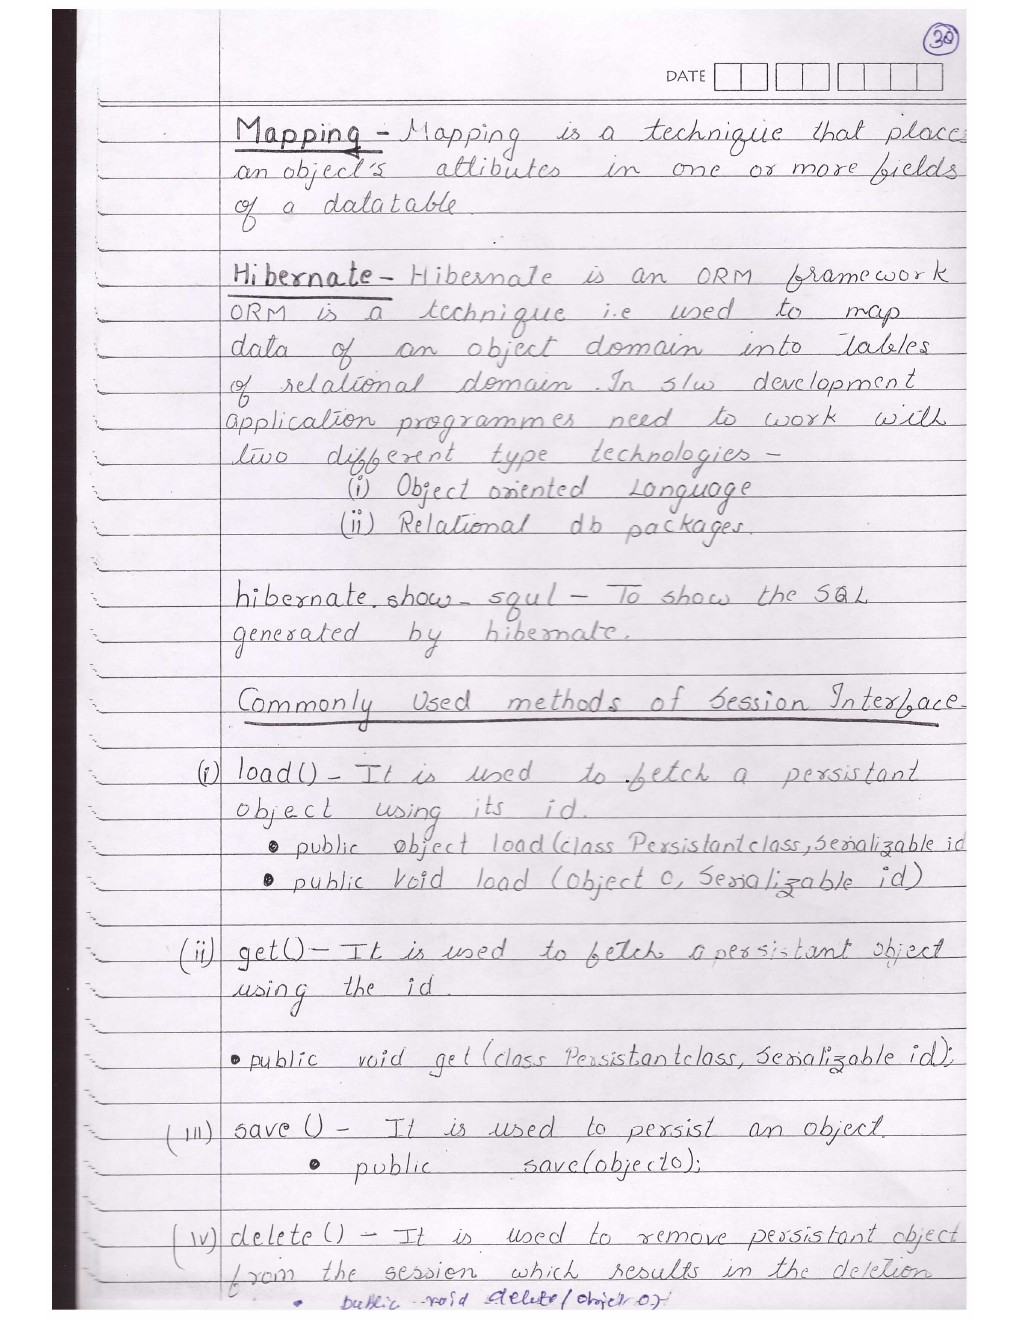 30
DATE
Mapping - Mapping is a technique that places
an object's attibutes in one or more fields
of a datatable
Hibernate - Hibernate is an ORM framework
ORM is a technique i.e used to map
data of an object domain into tables
of relational domain. In s/w development
application programmes need to work with
two different type technologies -
(i) Object oriented Language
(ii) Relational db packages.
hibernate.show_squl - To show the SQL
generated by hibernate.
Commonly Used methods of Session Interface
(i) load() - It is used to fetch a persistant
object using its id.
• public object load (class Persistantclass, Serializable id
• public void load (Object O, Serializable id)
(ii) get() - It is used to fetch a persistant object
using the id
• public void get (class Persistantclass, Serializable id);
(iii) save () - It is used to persist an object.
• public save(objecto);
(iv) delete () - It is used to remove persistant object
from the session which results in the deletion
• public void delete (object o);